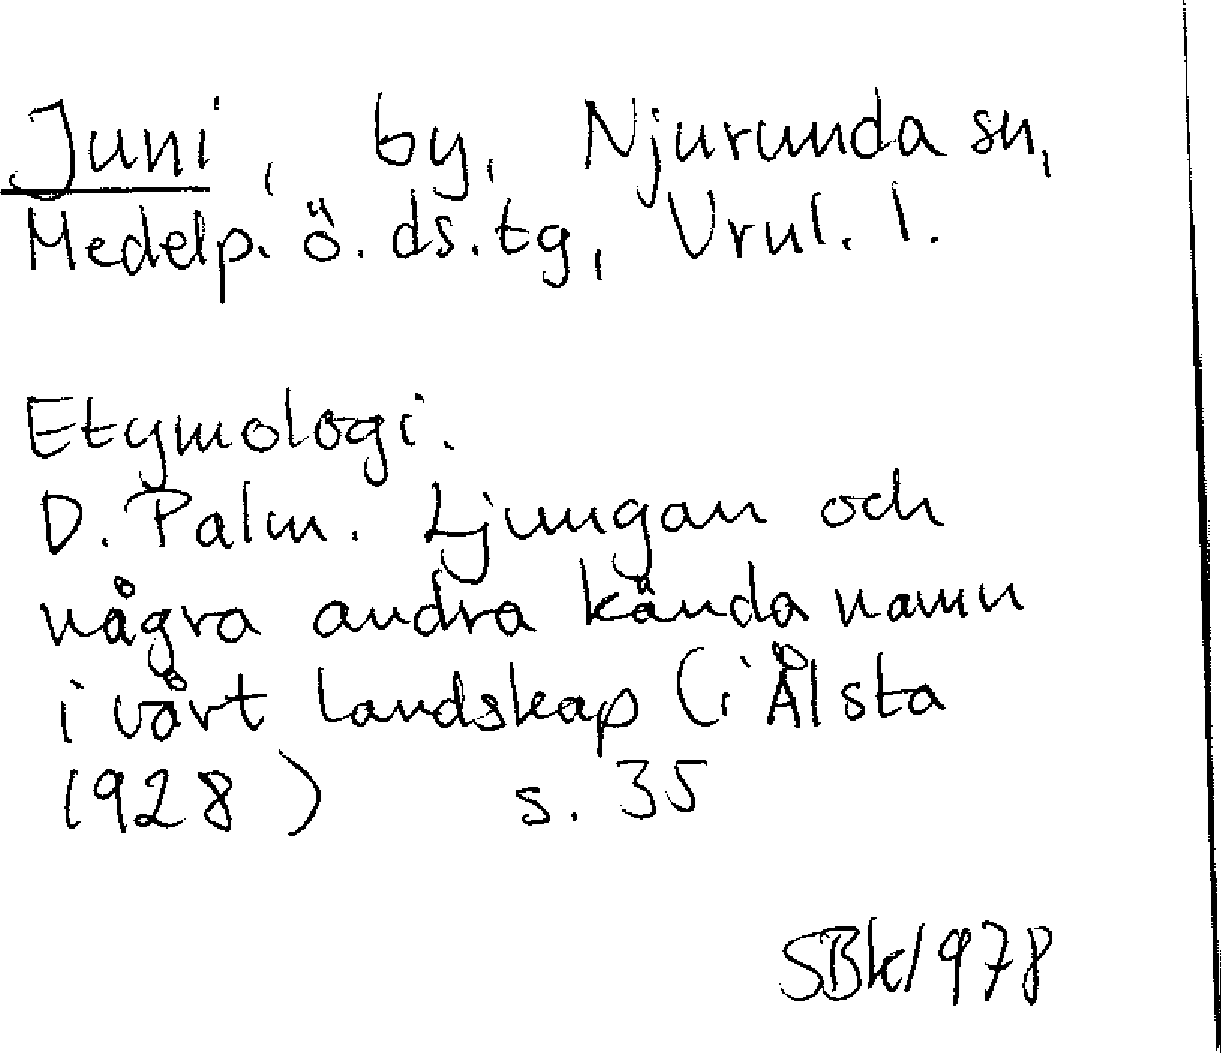 Juni, by, Njurunda sn,
Medelp. ö. ds. tg, Vrnl. l.
Etymologi.
D. Palm. Ljungan och
några andra kända namn
i vårt landskap (i Ålsta
1928) s. 35
SBk1978